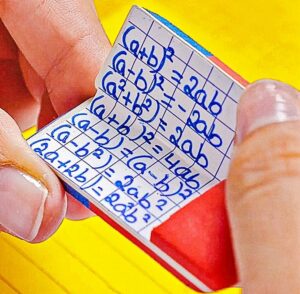 (a+b)² = 2ab
(a-b)² = -2ab
(a²+b²) = 2ab
(a+b)² = 4ab
(a-b)=(a-b)²
(a-b²) = 2ab²
(2a+2b) = 2a²b²